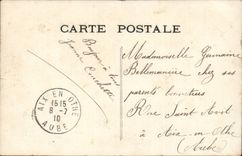 CARTE POSTALE
Bonjour à tous
Mademoiselle Germaine
Bellemanière chez ses
parents
Rue Saint Avit
à Aix-en-Othe
(Aube)
AIX EN OTHE
15 15
8-7
10
AUBE